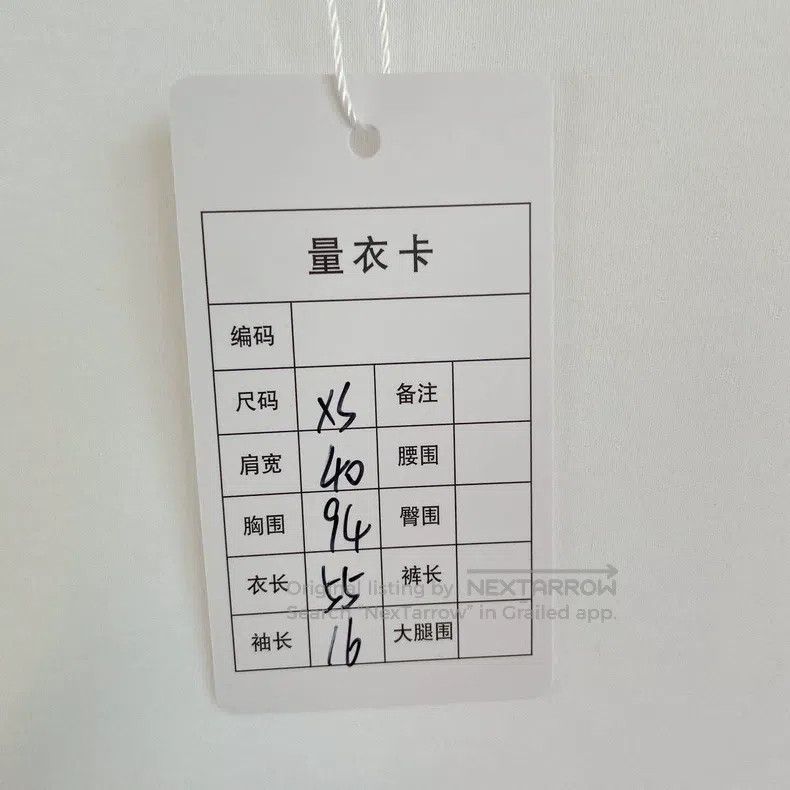 量衣卡
编码
尺码 XS 备注
肩宽 40 腰围
胸围 94 臀围
衣长 55 裤长
袖长 16 大腿围
Original listing by NEXTARROW
Search "NexTarrow" in Grailed app.